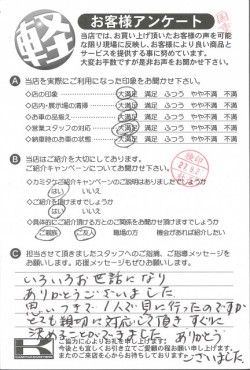 軽
お客様アンケート
当店では、お買い上げ頂いたお客様の声を可能
な限り現場に反映し、お客様により良い商品と
サービスを提供する事に努めています。
大変お手数ですが是非お声をお聞かせ下さい。
A 当店を実際にご利用になった印象をお聞かせ下さい。
◇店の印象 大満足 満足 ふつう やや不満 不満
◇店内・展示場の清掃 大満足 満足 ふつう やや不満 不満
◇お車の品揃え 大満足 満足 ふつう やや不満 不満
◇営業スタッフの対応 大満足 満足 ふつう やや不満 不満
◇納車時のお車の状態 大満足 満足 ふつう やや不満 不満
B 当店はご紹介を大切にしてあります。
ご紹介キャンペーンについてお聞かせ下さい。
◇カミタケご紹介キャンペーンのご説明はありましたでしょうか
はい いいえ
◇ご紹介を頂けますでしょうか
はい いいえ
◇具体的にご紹介頂ける方とのご関係をお聞かせ頂けますでしょうか
ご家族 ご友人 職場の方 機会があれば紹介したい
C 担当させて頂きましたスタッフへのご指摘、ご指導メッセージを
お願いします。応援メッセージもぜひお願いします。
いろいろお世話になり
ありがとうございました。
思いつきで1人で見に行ったのですが
とても親切に対応して頂き すぐに
決めることができました。 ありがとう
ございました
ご協力に心よりお礼を申し上げます。
今後とも宜しくお引き立てご愛顧の程お願い申し上げます。
またのご来店を心からお待ちしております。